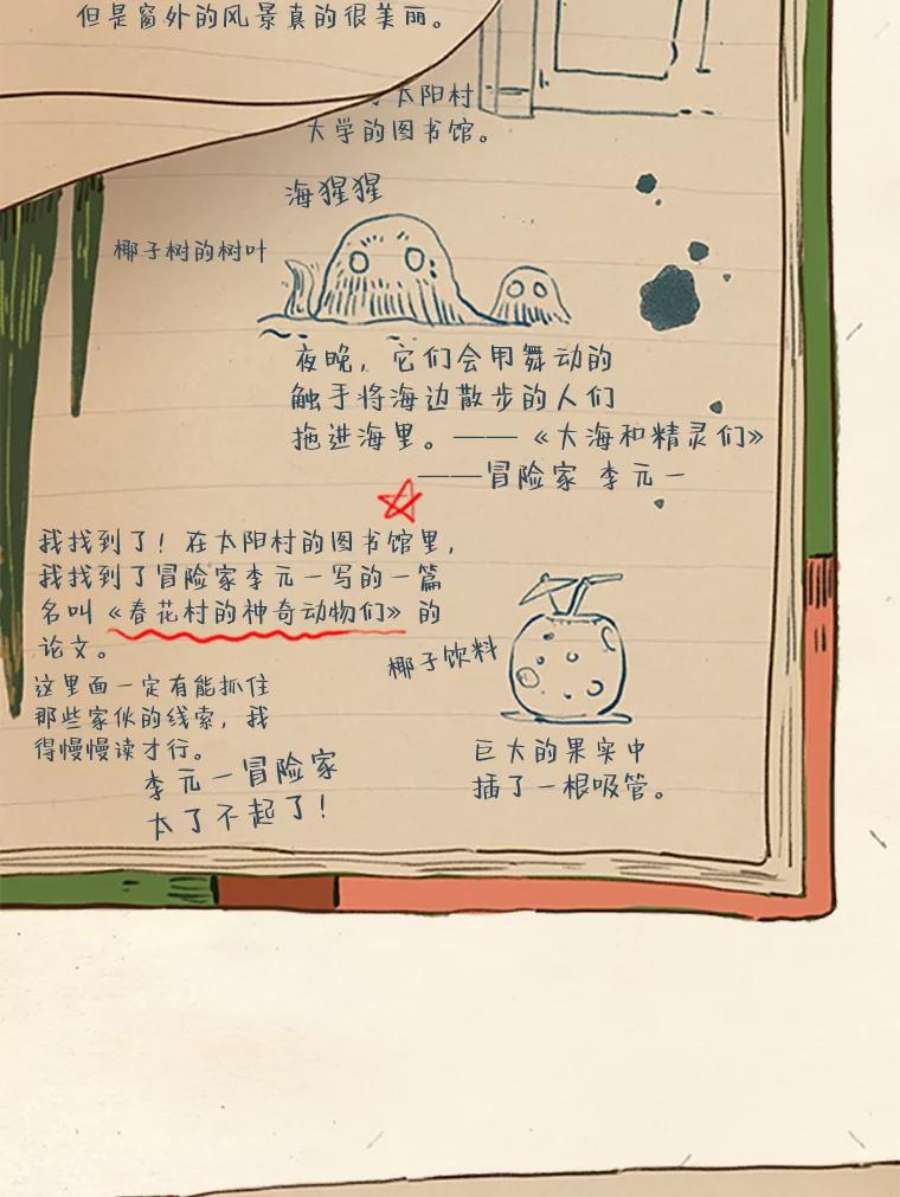 但是窗外的风景真的很美丽。
太阳村
大学的图书馆。
海猩猩
椰子树的树叶
夜晚，它们会用舞动的
触手将海边散步的人们
拖进海里。——《大海和精灵们》
——冒险家 李元一
我找到了！在太阳村的图书馆里，
我找到了冒险家李元一写的一篇
名叫《春花村的神奇动物们》的
论文。
这里面一定有能抓住
那些家伙的线索，我
得慢慢读才行。
李元一冒险家
太了不起了！
椰子饮料
巨大的果实中
插了一根吸管。